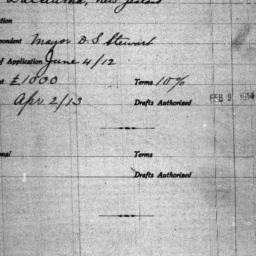 Balclutha, New Zealand
tion
pondent Mayor D. S. Stewart
f Application June 4/12
t £1000 Terms 10%
Apr 2/13 Drafts Authorized FEB 9
nal Terms
Drafts Authorized